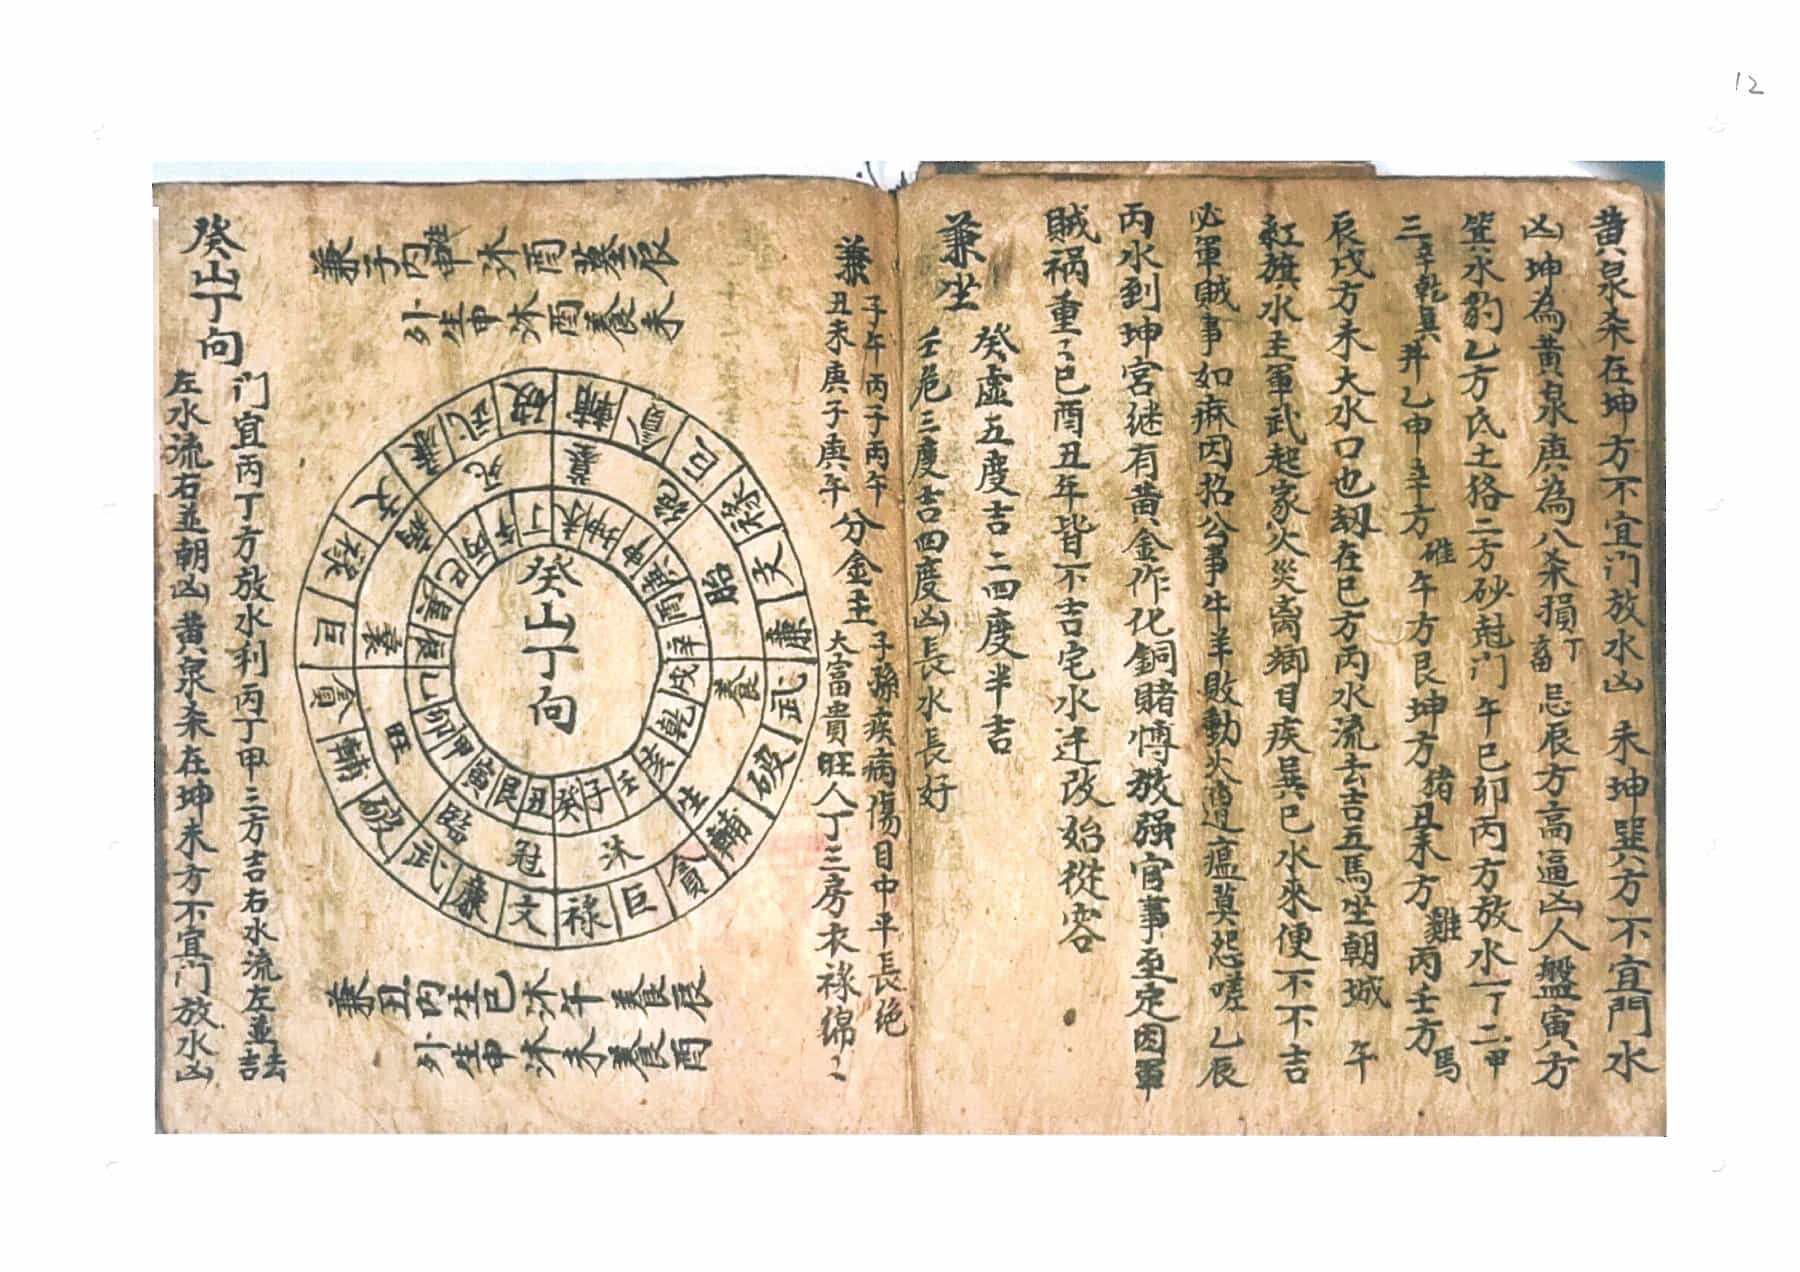 12
黄泉杀在坤方不宜门放水凶 未坤巽方不宜門水
凶坤為黄泉庚為八杀損丁畜忌辰方高逼凶人盤寅方
箕水豹乙方氐土狢二方砂尅门午巳卯丙方放水一丁二甲
三辛乾巽井乙申辛方碓午方艮坤方猪丑未方雞丙壬方馬
辰戌方未大水口也刼在巳方丙水流去吉五馬坐朝城 午
紅旗水主軍武起家火災离鄉目疾巽巳水來便不不吉
必軍賊事如麻因招公事牛羊敗動火瘟莫怨嗟乙辰
丙水到坤宮継有黄金作化銅賭愽放强官事至定因軍
賊祸重〻巳酉丑年皆不吉宅水迁改始從容
兼坐
癸虚五度吉二四度半吉
壬危三度吉四度凶長水長好
兼
子午丙子丙午
丑未庚子庚午
分金主
子孫疾病傷目中平長绝
大富貴旺人丁三房衣禄綿〻
兼子内 申沐酉墓辰
外生申沐酉養未
癸山丁向
破輔貪巨禄文廉武破輔貪巨禄文廉武破輔貪巨禄文廉武
墓绝胎養生沐冠臨旺衰病死
丁未坤申庚酉辛戌乾亥壬子癸丑艮寅甲卯乙辰巽巳丙午
兼丑内生巳沐午養辰
外生申沐未養酉
癸山丁向
门宜丙丁方放水利丙丁甲三方吉右水流左並去吉
左水流右並朝凶黄泉杀在坤未方不宜门放水凶